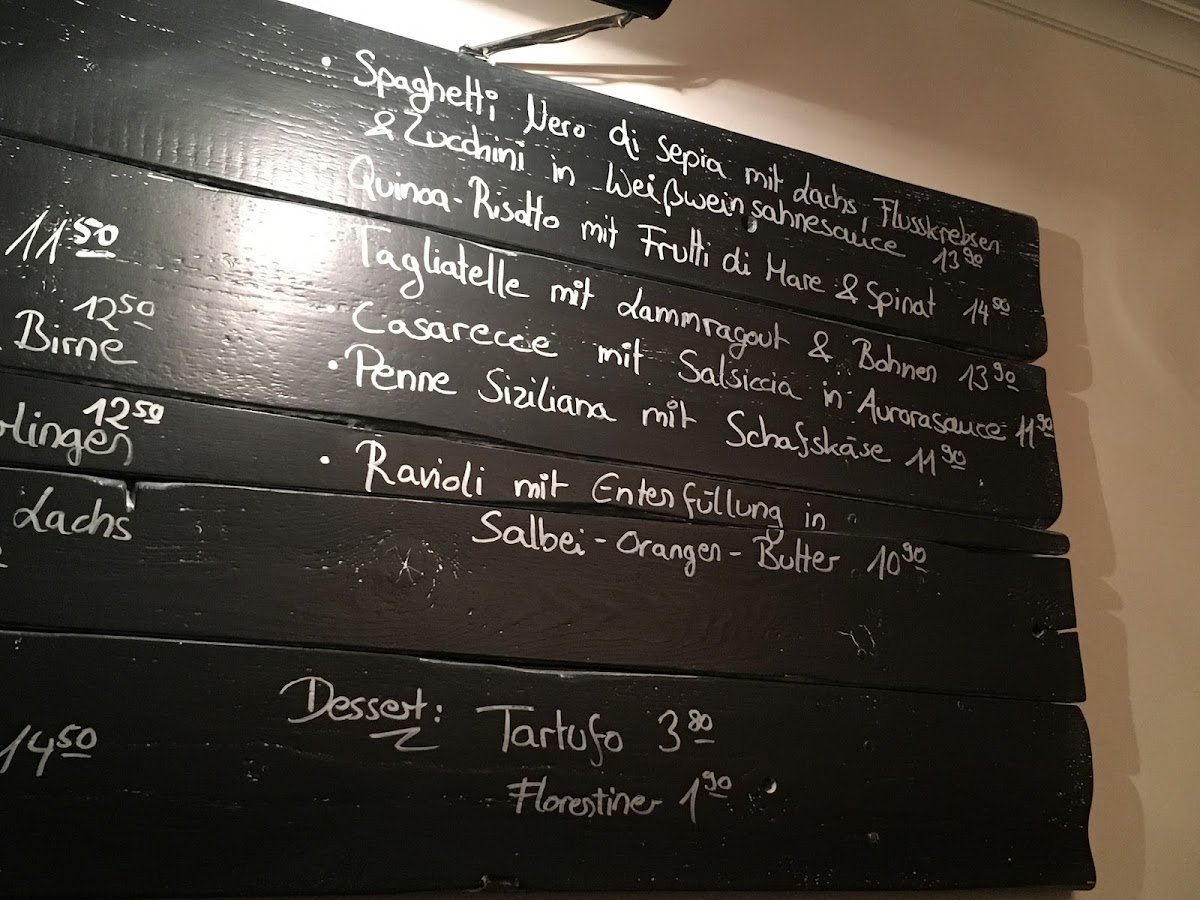 • Spaghetti Nero di Sepia mit Lachs, Flusskrebsen
& Zucchini in Weißweinsahnesauce 13 90
Quinoa-Risotto mit Frutti di Mare & Spinat 14 50
Tagliatelle mit Lammragout & Bohnen 13 90
• Casarecce mit Salsiccia in Aurorasauce 11 90
• Penne Siziliana mit Schafskäse 11 90
• Ravioli mit Entenfüllung in
Salbei-Orangen-Butter 10 90
Dessert: Tartufo 3 80
Florentiner 1 90
11 50
12 50
Birne
12 50
Lachs
14 50